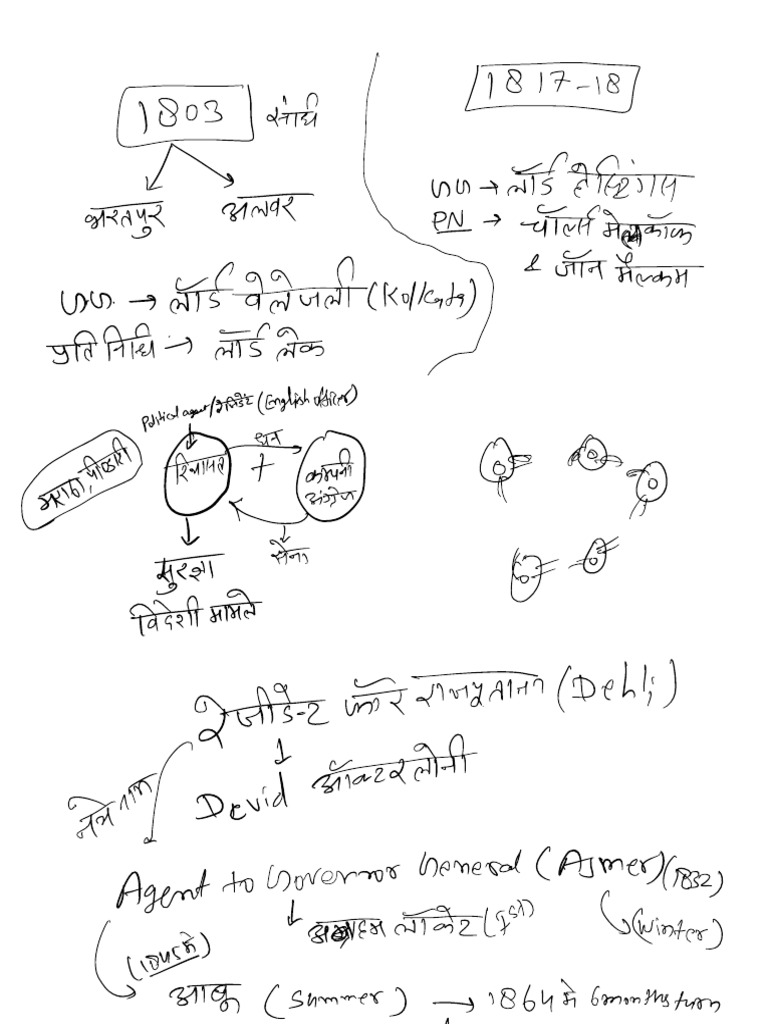 1803 संधि
भरतपुर अलवर
GG → लॉर्ड वेलेजली (Kolkata)
प्रतिनिधि → लॉर्ड लेक
1817-18
GG → लॉर्ड हेस्टिंगस
PN → चॉर्ल्स मेटकॉफ
& जॉन मैल्कम
Political agent/रेजिडेंट (English ऑफिसर)
मराठा, पीण्डारी
रियासत + कम्पनी अंग्रेज
धन
सेना
सुरक्षा
विदेशी मामले
रेजीडेन्ट फॉर राजपूताना (Dehli)
Devid ऑक्टरलोनी
नये नाम
Agent to Governor General (Ajmer) (1832)
लॉकेट (1st) (Winter)
(1845 मे)
आबू (summer) → 1864 मे 6 months turn